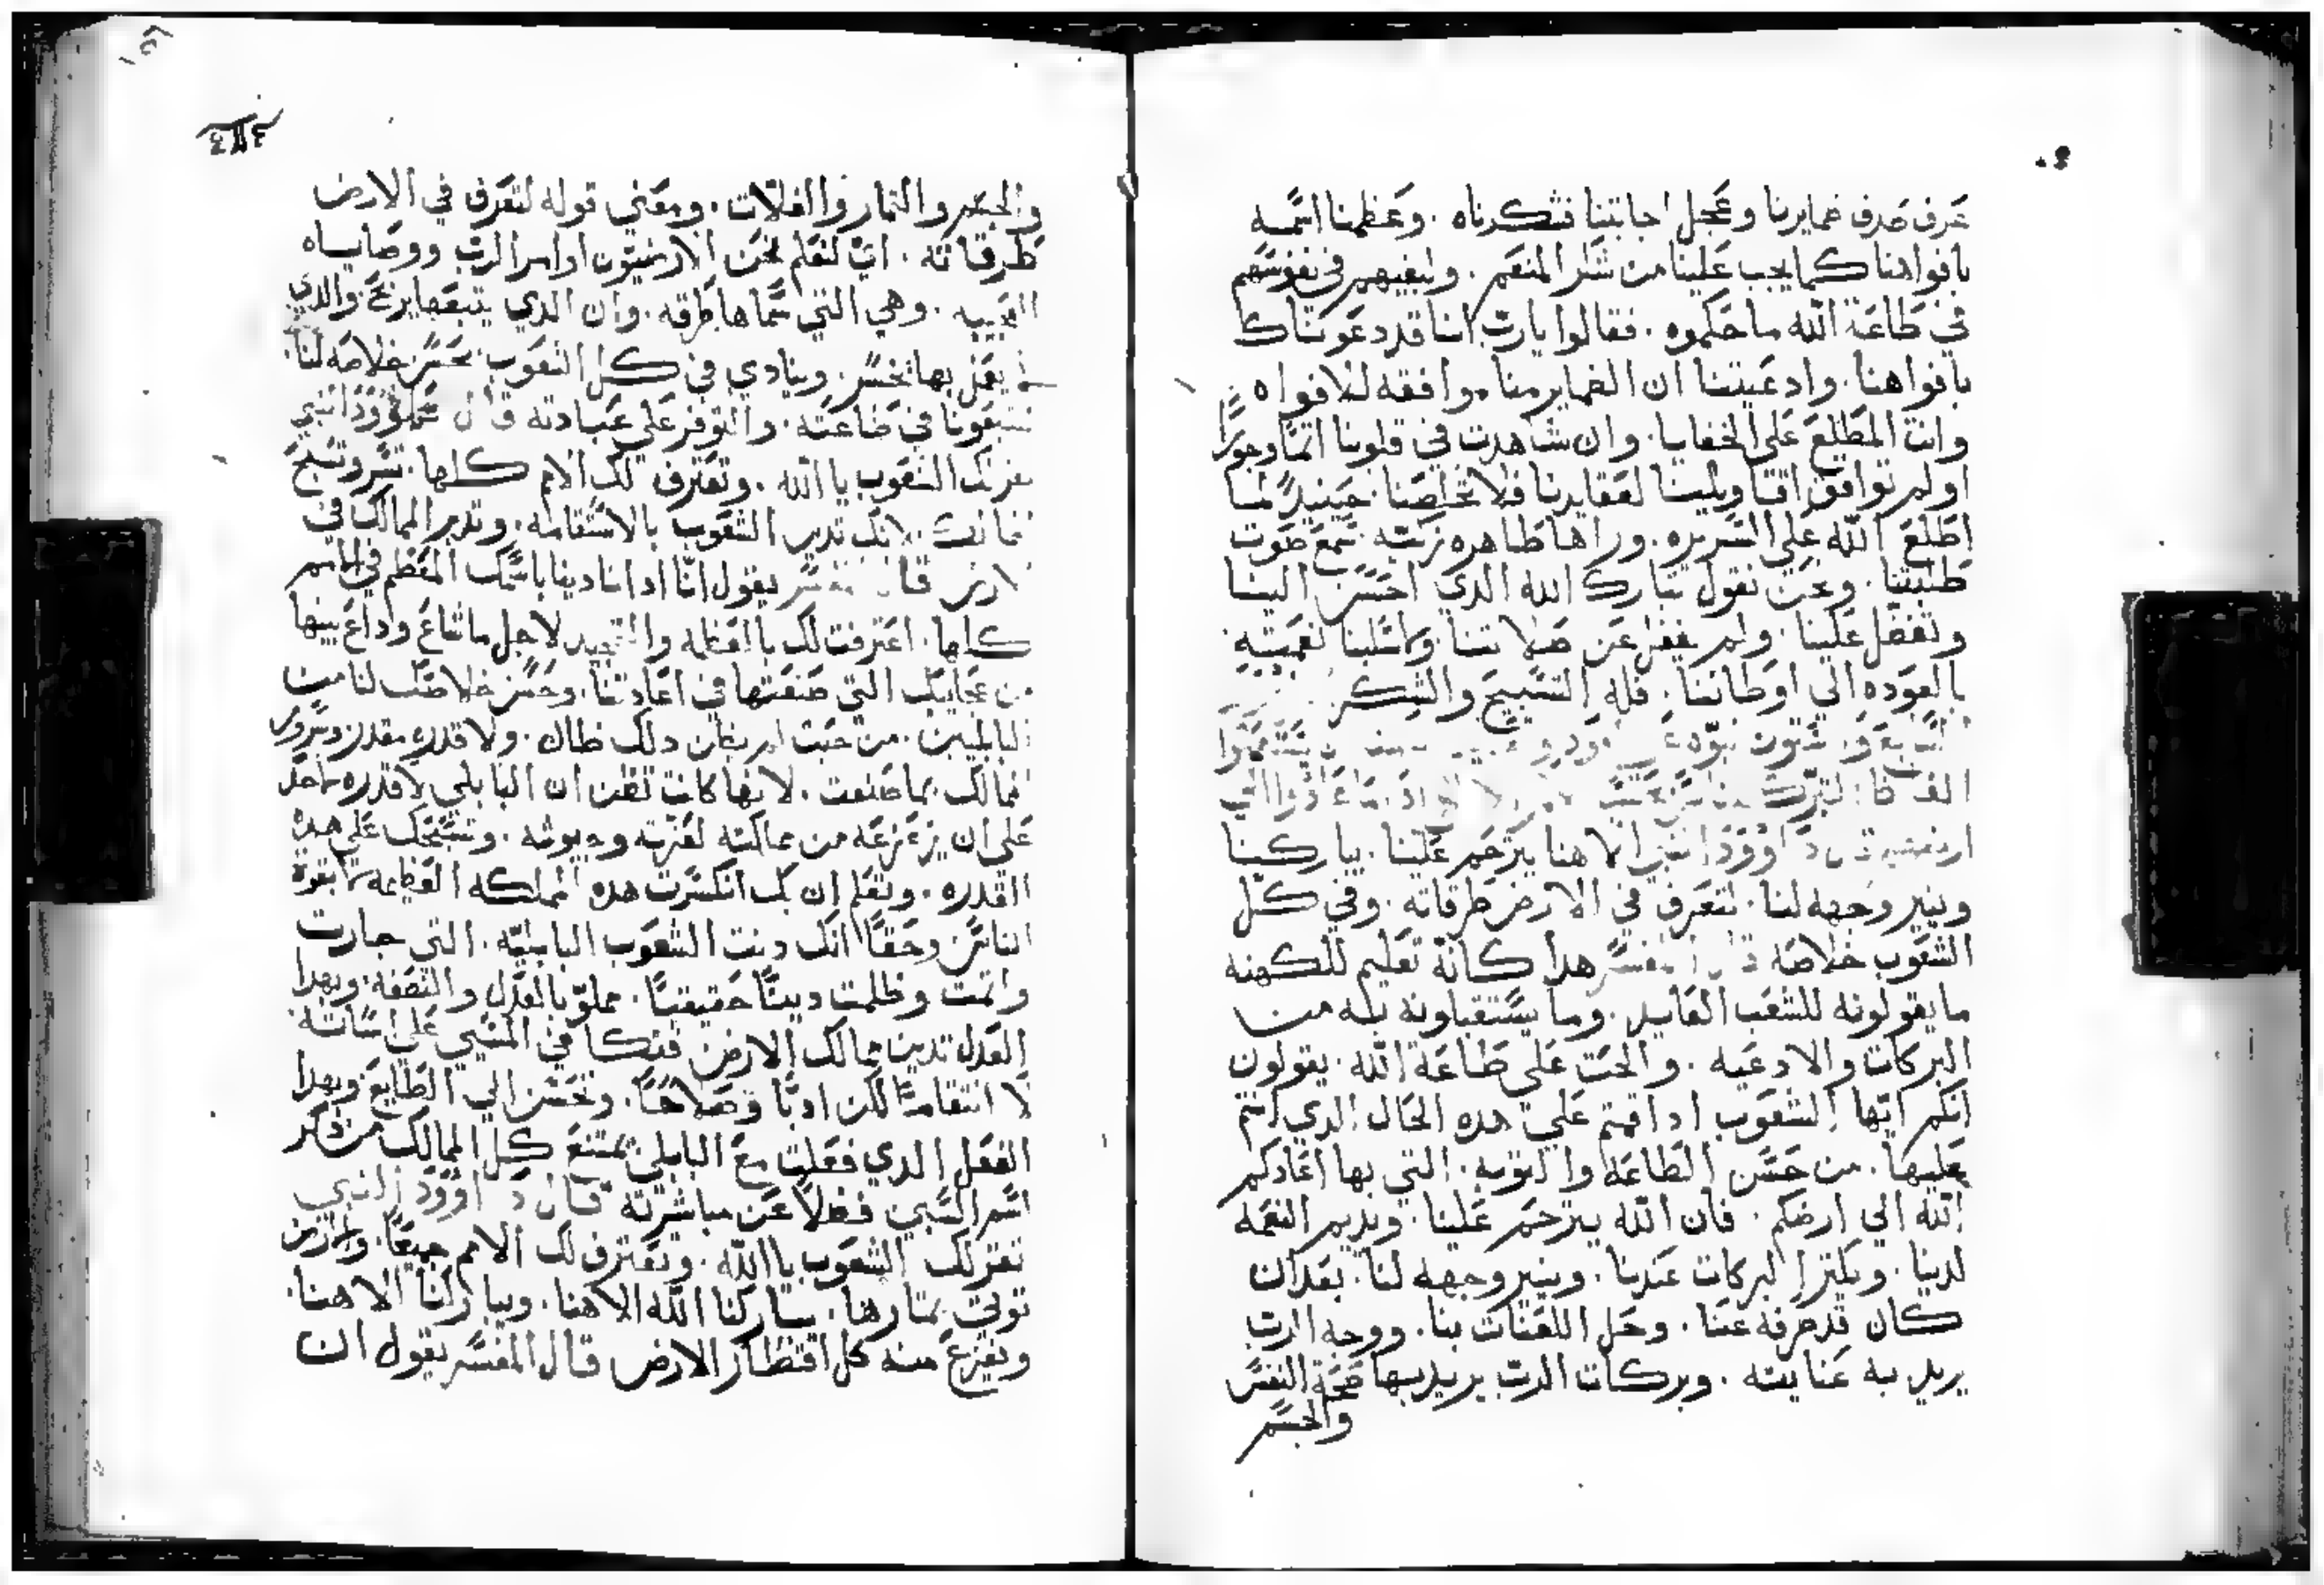 عرف صدق ضمايرنا وعجل اجابتنا فشكرناه . وعظمنا اسمه
بافواهنا كما يجب علينا من شكر المنعم . وليفيهم في نفوسهم
في طاعة الله ما حكموه . فقالوا يارب اننا قد دعوناك
بافواهنا . وادعيتنا ان الضماير منا موافقه للافواه
وانت المطلع على الخفايا . وان شاهدت في قلوبنا اثما وجورا
اولم توافق اقاويلنا لعقايدنا فلا تخلصنا . حينيد لما
اطلع الله على السريره . وراها طاهره زكيه . سمع صوت
طلبتنا . ونحن نقول تبارك الله الدي احسن الينا
وتفضل علينا . ولم يغفل عن صلاتنا ولا سلبنا نعمته
بالعوده الي اوطاننا . فله التسبيح والشكر
داوود النبي الاهنا يترحم علينا . يباركنا
وينير وجهه لنا . لتعرف في الارض طرقاته . وفي كل
الشعوب خلاصه قال المفسر هدا كانه تعليم للكهنه
ما يقولونه للشعب العايد . وما يستقبلونه به من
البركات والادعيه . والحت على طاعة الله . يقولون
انكم ايها الشعوب ادا قمتم علي هده الحال الدي انتم
عليها . من حسن الطاعه والتوبه . التي بها اعادكم
الله الي ارضكم . فان الله يترحم علينا . ويديم النعمه
لدينا . ويكتر البركات عندنا . وينير وجهه لنا . بعد ان
كان قد صرفه عنا . وحل اللعنات بنا . ووجه الرب
يريد به عنايته . وبركات الرب يريد بها صحة النفس
والجسم
والجسم والتمار والغلات . ومعني قوله لتعرف في الارض
طرقاته . اي لنعلم نحن الارضيون اوامر الرب ووصاياه
. وهي التي سماها طرقه . وان الدي يتبعها يربح والدي
يعمل بها يخسر . وينادي في كل الشعوب بحسن خلاصه لنا
في طاعته . والتوفر على عبادته قال داوود النبي
الشعوب يا الله . وتعترف لك الامم كلها . تسر وتبتهج
الممالك . لانك تدين الشعوب بالاستقامه . وتدبر الممالك في
الارض قال المفسر يقول انا ادا نادينا باسمك المعظم في الامم
كلها . اعترفت لك بالعظمه والتمجيد لاجل ما شاع وداع بينها
من عجايبك التي صنعتها في اعادتنا . وحسن خلاصك لنا من
البابليين . من حيت لم يكن دلك بظان . ولا قدره مقدر
الممالك بما صنعت . لانها كانت تظن ان البابلي لا قدره لاحد
على ان يزعزعه من مملكته لعزته وجيوشه . وتتعجب على هده
القدره . وتعلم ان بك انكسرت هده المملكه العظيمه لا بقوة
الناس وحقا انك دنت الشعوب البابليه . التي جارت
واتمت وظلمت دينا حقيقيا . مملو بالعدل والنصفه . وبهدا
العدل تدين ممالك الارض فتكافي المسي على اساته
لا انتقاما لكن ادبا وصلاحا . وتحسن الي الطايع . وبهدا
الفعل الدي فعلت مع البابلي يمتنع كل الممالك من دكر
اسم السبي فضلا عن مباشرته قال داوود النبي
تقر لك الشعوب يا الله . وتعترف لك الامم جميعا . والارض
توتي تمارها . يباركنا الله الاهنا . ويباركنا الاهنا .
ويفزع منه كل اقطار الارض قال المفسر يقول ان